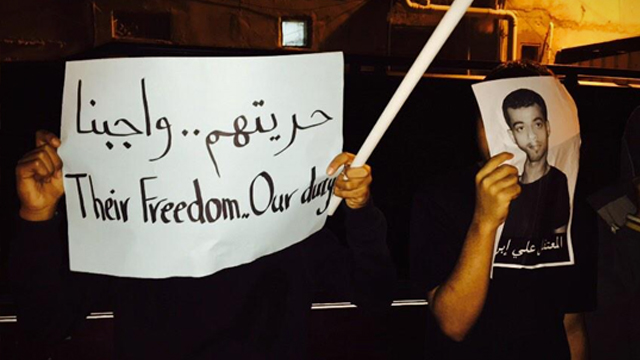 حريتهم..واجبنا
Their Freedom..Our duty
المعتقل علي